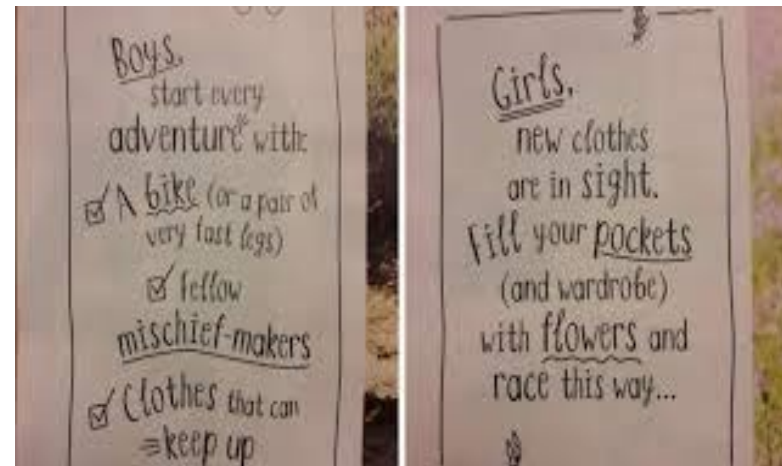 Boys,
start every
adventure* with:
A bike (or a pair of
very fast legs)
fellow
mischief-makers
Clothes that can
keep up
Girls,
new clothes
are in sight.
Fill your pockets
(and wardrobe)
with flowers and
race this way...